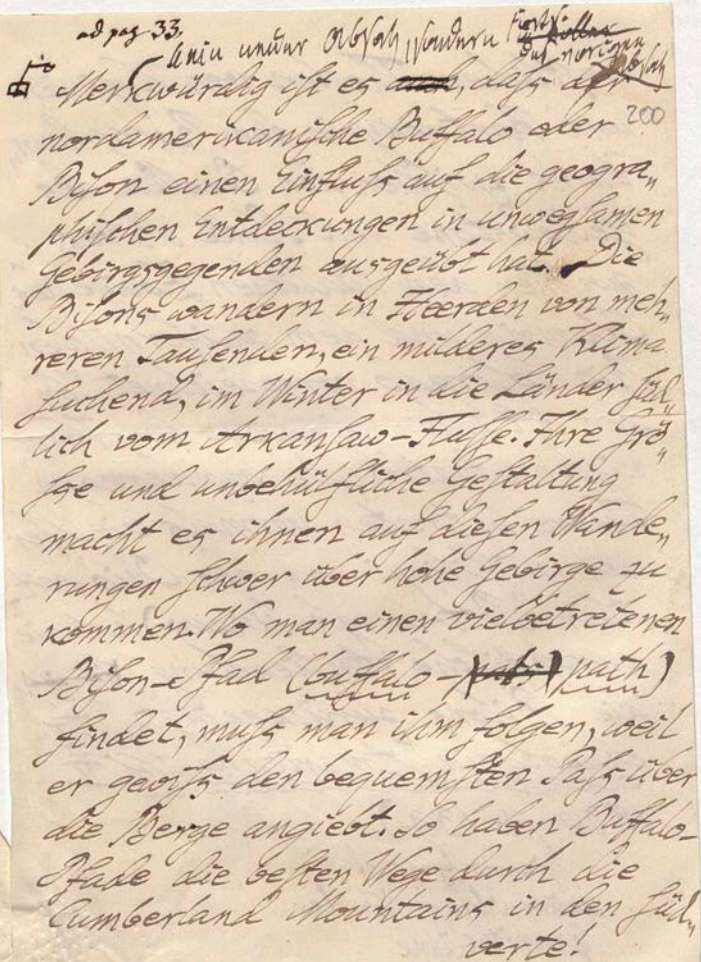 ad pag 33.
kein neuer Absatz, sondern
des vorigen
Merkwürdig ist es auch, dass der
200
nordamericanische Buffalo oder
Bison einen Einfluss auf die geogra„
phischen Entdeckungen in unwegsamen
Gebirgsgegenden ausgeübt hat. Die
Bisons wandern in Heerden von meh„
reren Tausenden, ein milderes Klima
suchend, im Winter in die Länder süd„
lich vom Arkansaw-Flusse. Ihre Grö„
sse und unbehülfliche Gestaltung
macht es ihnen auf diesen Wande„
rungen schwer über hohe Gebirge zu
kommen. Wo man einen vielbetretenen
Bison-Pfad (buffalo-path)
findet, muss man ihm folgen, weil
er gewiss den bequemsten Pass über
die Berge angiebt. So haben Buffalo-
Pfade die besten Wege durch die
Cumberland Mountains in den süd„
verte!